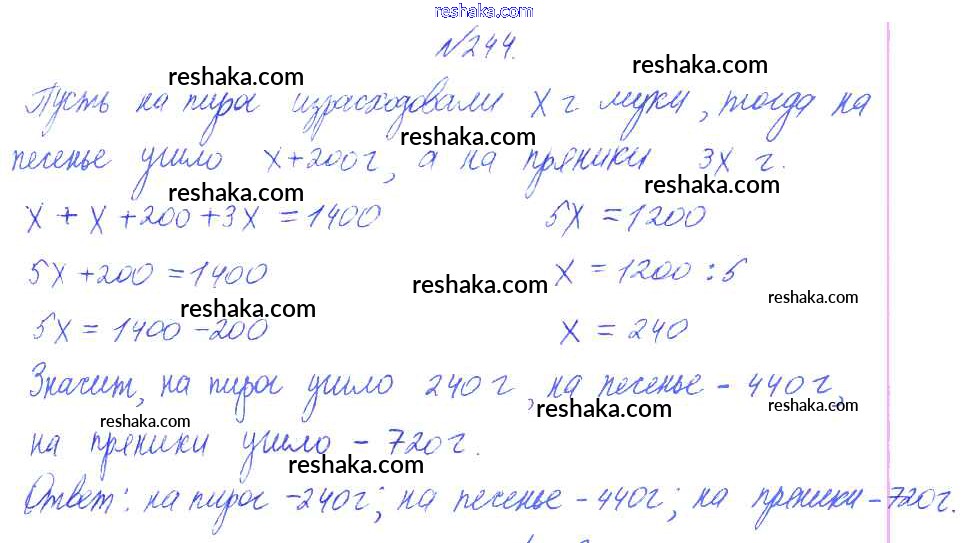 reshaka.com
№244.
reshaka.com reshaka.com
Пусть на пирог израсходовали x г муки, тогда на
reshaka.com
песенье ушло x+200г, а на пряники 3x г.
reshaka.com reshaka.com
x + x + 200 + 3x = 1400 5x = 1200
5x + 200 = 1400 x = 1200 : 5
reshaka.com reshaka.com
reshaka.com
5x = 1400 - 200 x = 240
Значит, на пирог ушло 240 г, на песенье - 440 г,
reshaka.com reshaka.com reshaka.com
на пряники ушло - 720 г.
reshaka.com
Ответ: на пирог - 240г; на песенье - 440г; на пряники - 720г.